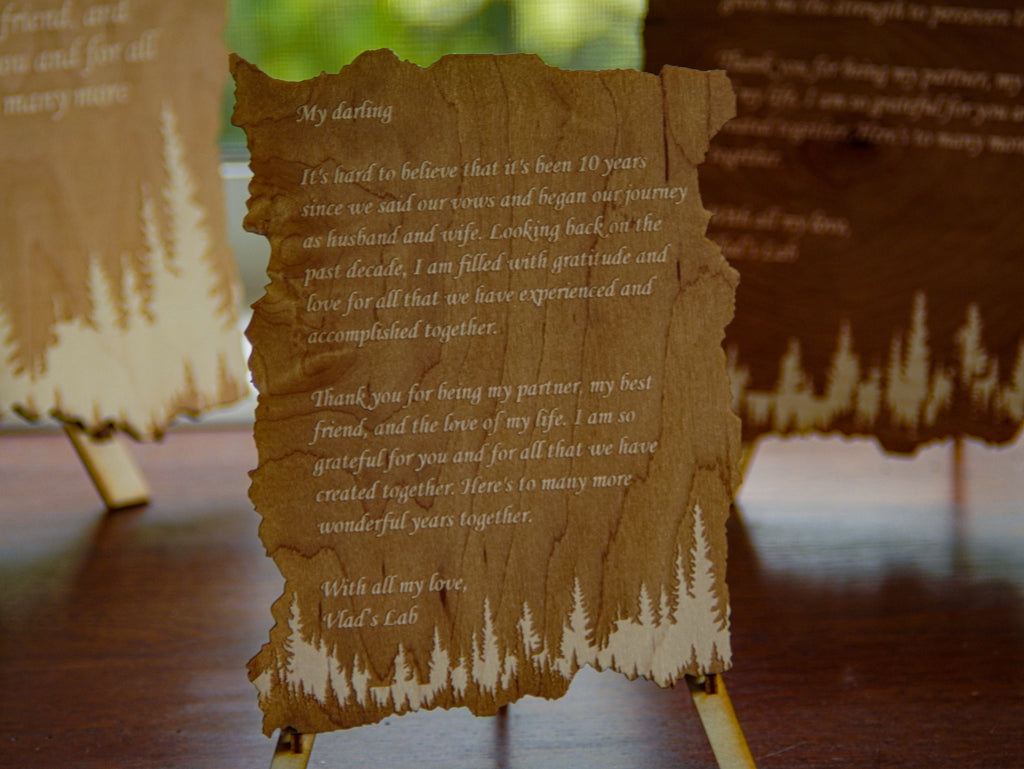 friend, and
ou and for all
many more
My darling
It's hard to believe that it's been 10 years
since we said our vows and began our journey
as husband and wife. Looking back on the
past decade, I am filled with gratitude and
love for all that we have experienced and
accomplished together.
Thank you for being my partner, my best
friend, and the love of my life. I am so
grateful for you and for all that we have
created together. Here's to many more
wonderful years together.
With all my love,
Vlad's Lab
the strength to persevere
Thank you for being my partner, my
my life. I am so grateful for you
together. Here's to many more
together.
all my love,
Lab